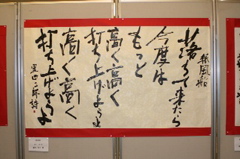 紙風船
落ちて来たら
今度は
もっと
高く高く
打ち上げようよ
高く高く
打ち上げようよ
黒田三郎 詩